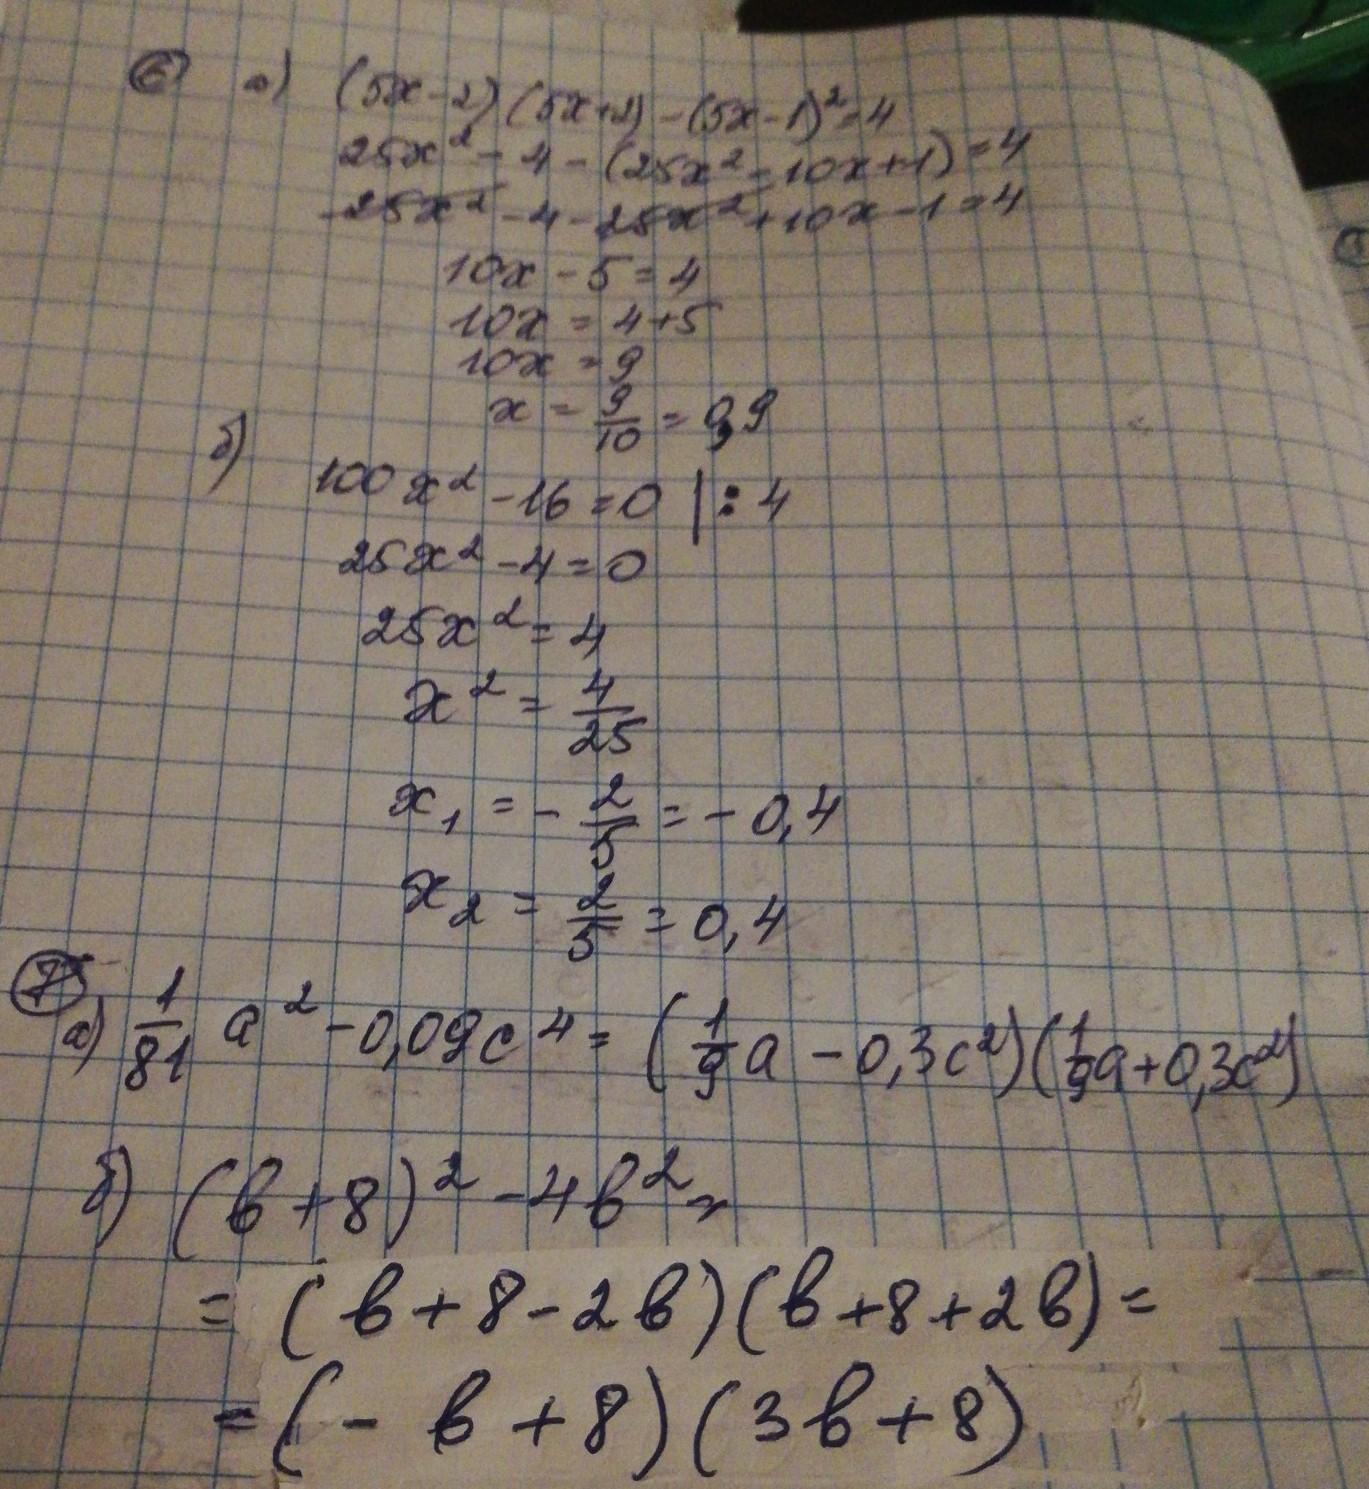 6 а) (5x-2)(5x+2)-(5x-1)²=4
25x²-4-(25x²-10x+1)=4
25x²-4-25x²+10x-1=4
10x-5=4
10x=4+5
10x=9
x=9/10=0,9
б) 100x²-16=0 |:4
25x²-4=0
25x²=4
x²=4/25
x₁=-2/5=-0,4
x₂=2/5=0,4
7 а) 1/81 a²-0,09c⁴=(1/9a-0,3c²)(1/9a+0,3c²)
б) (b+8)²-4b²=
=(b+8-2b)(b+8+2b)=
=(-b+8)(3b+8)